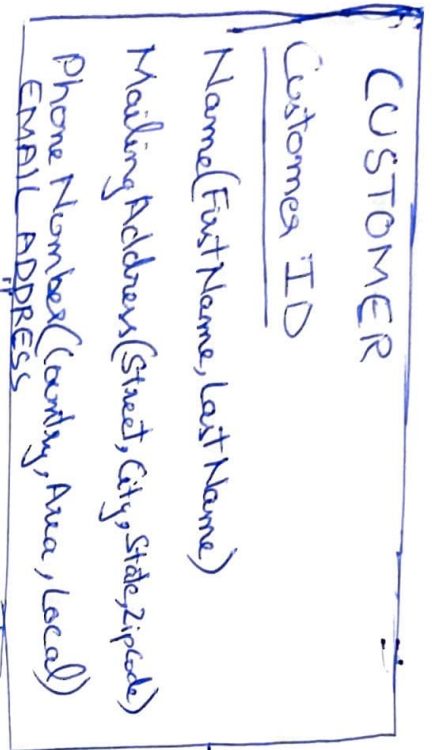 CUSTOMER
Customer ID
Name(First Name, Last Name)
Mailing Address(Street, City, State, ZipCode)
Phone Number(Country, Area, Local)
EMAIL ADDRESS